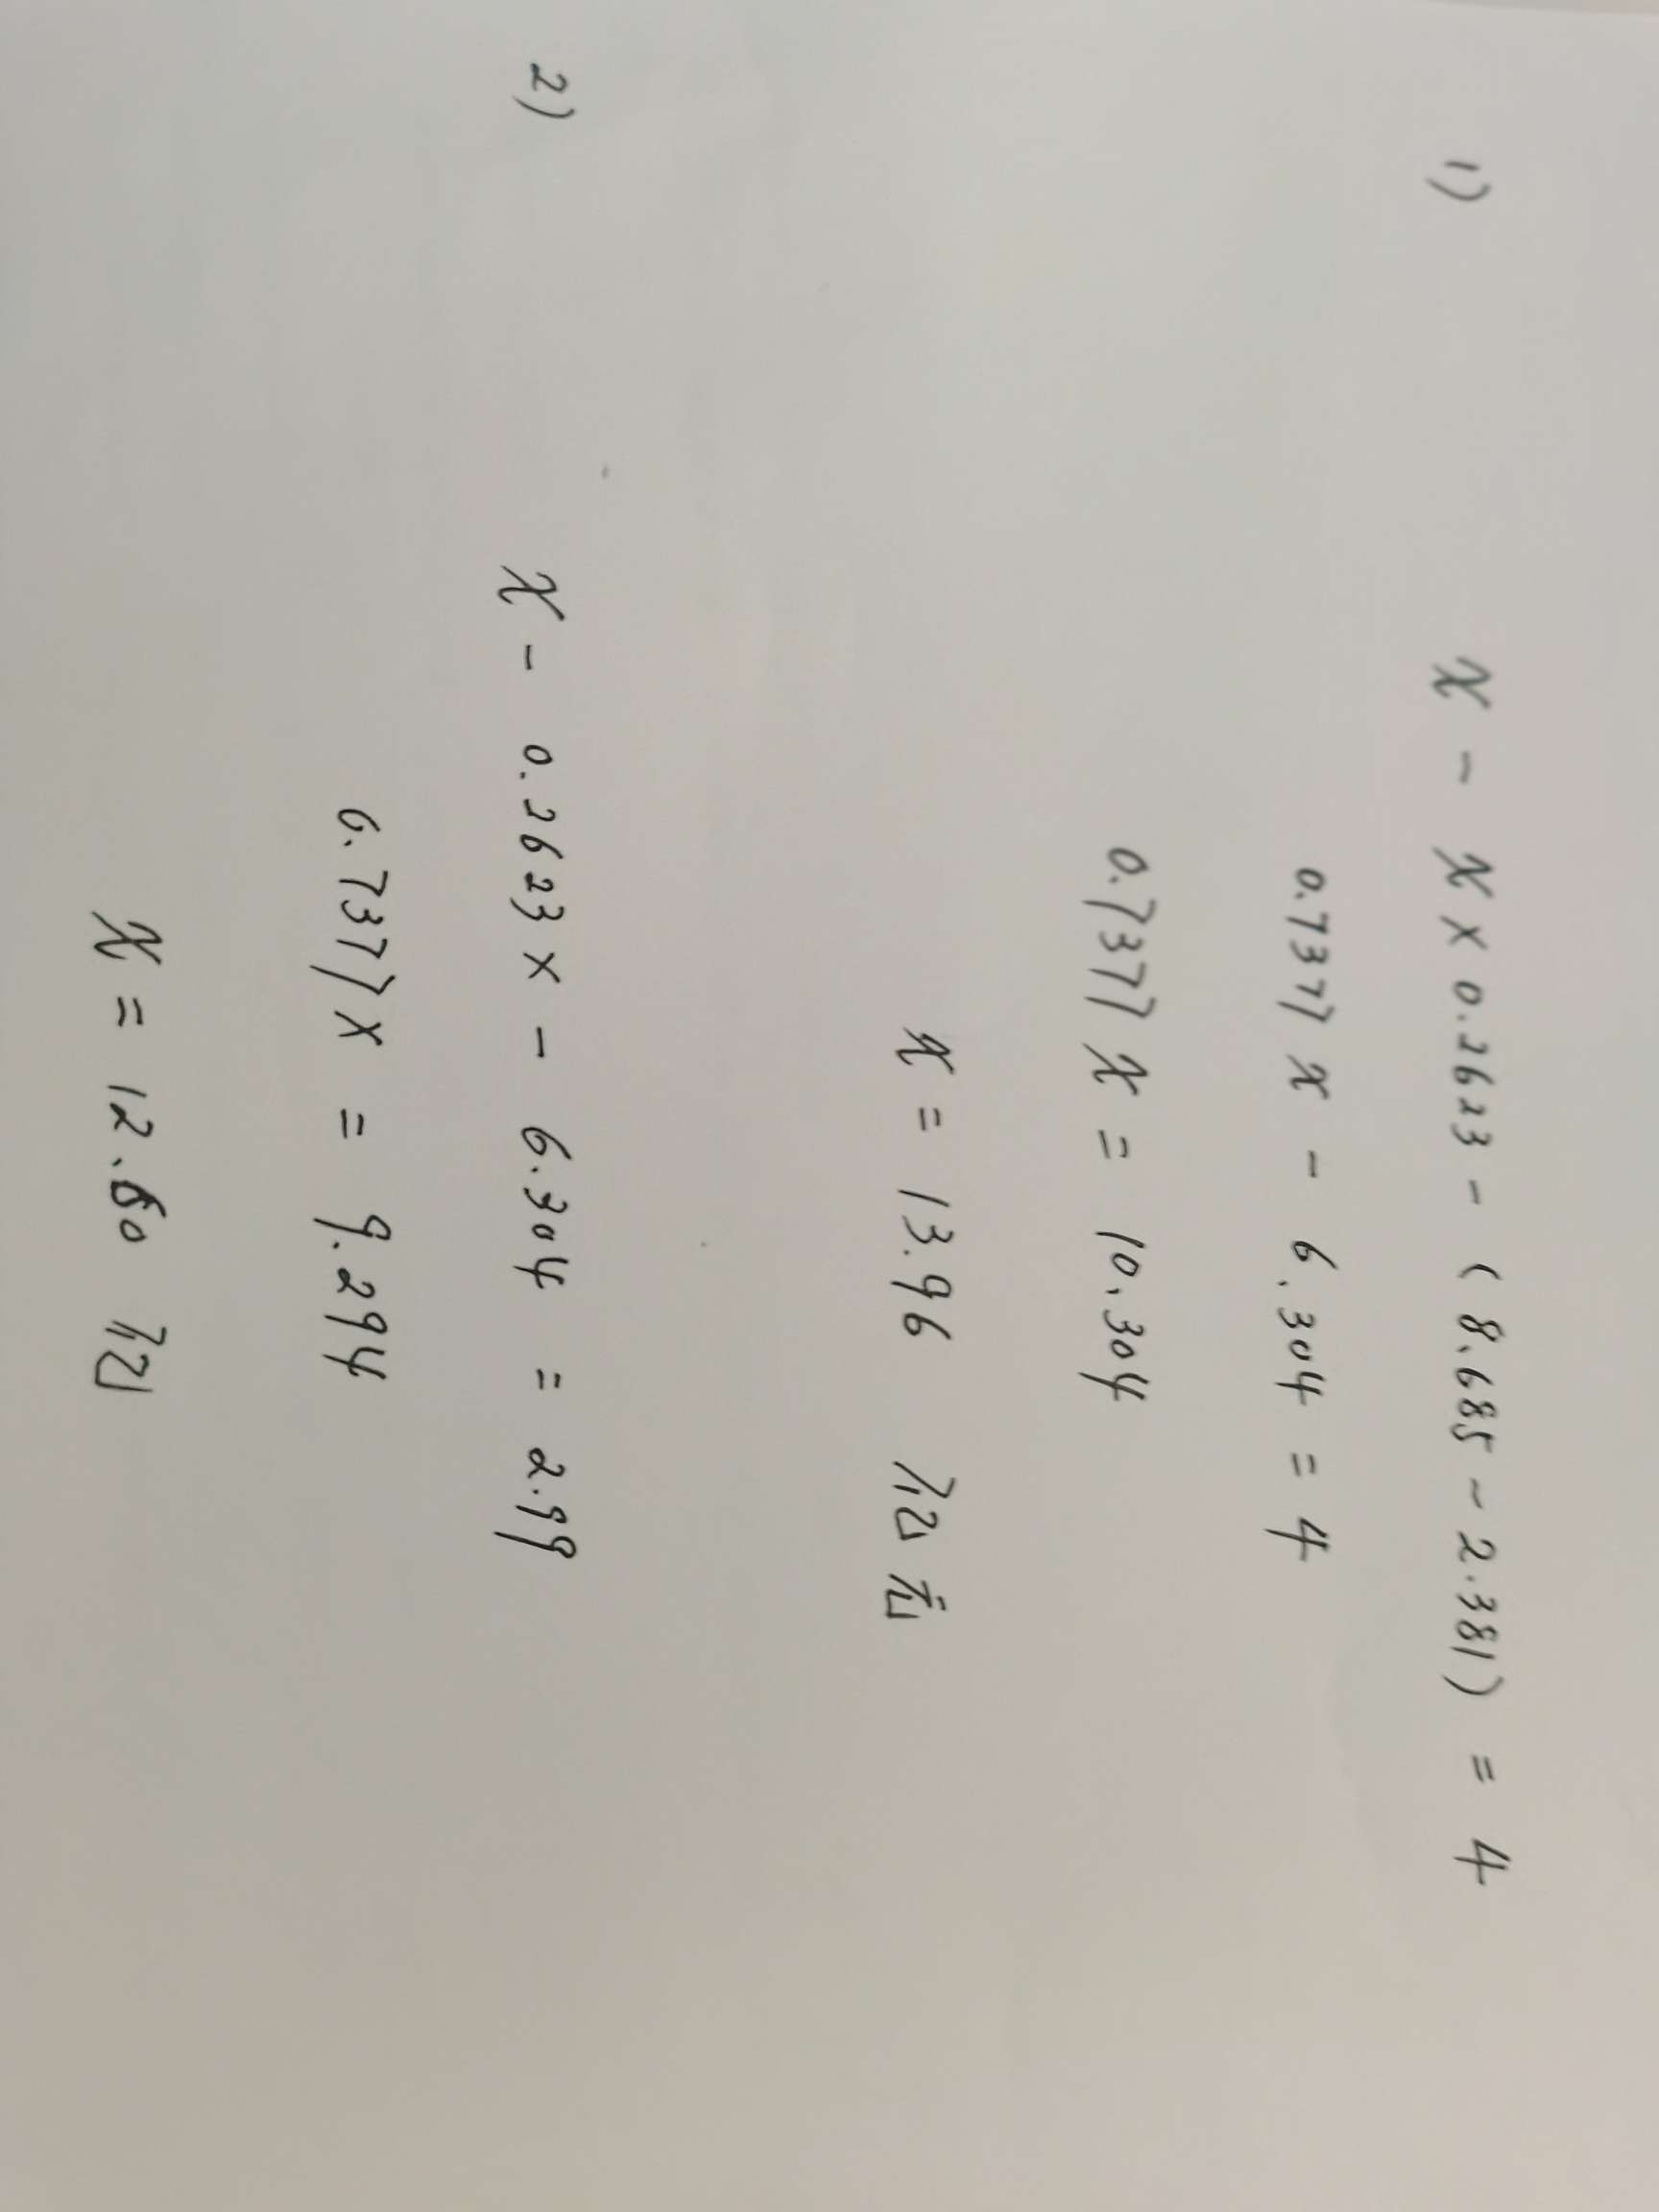 1) x - x × 0.2623 - (8.685 - 2.381) = 4
0.7377 x - 6.304 = 4
0.7377 x = 10.304
x = 13.96 亿元
2) x - 0.2623x - 6.304 = 2.99
0.7377x = 9.294
x = 12.60 亿